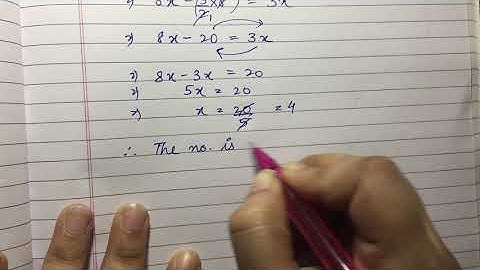 ⇒ 8x - 20 = 3x
⇒ 8x - 3x = 20
⇒ 5x = 20
⇒ x = 20/5 = 4
∴ The no. is